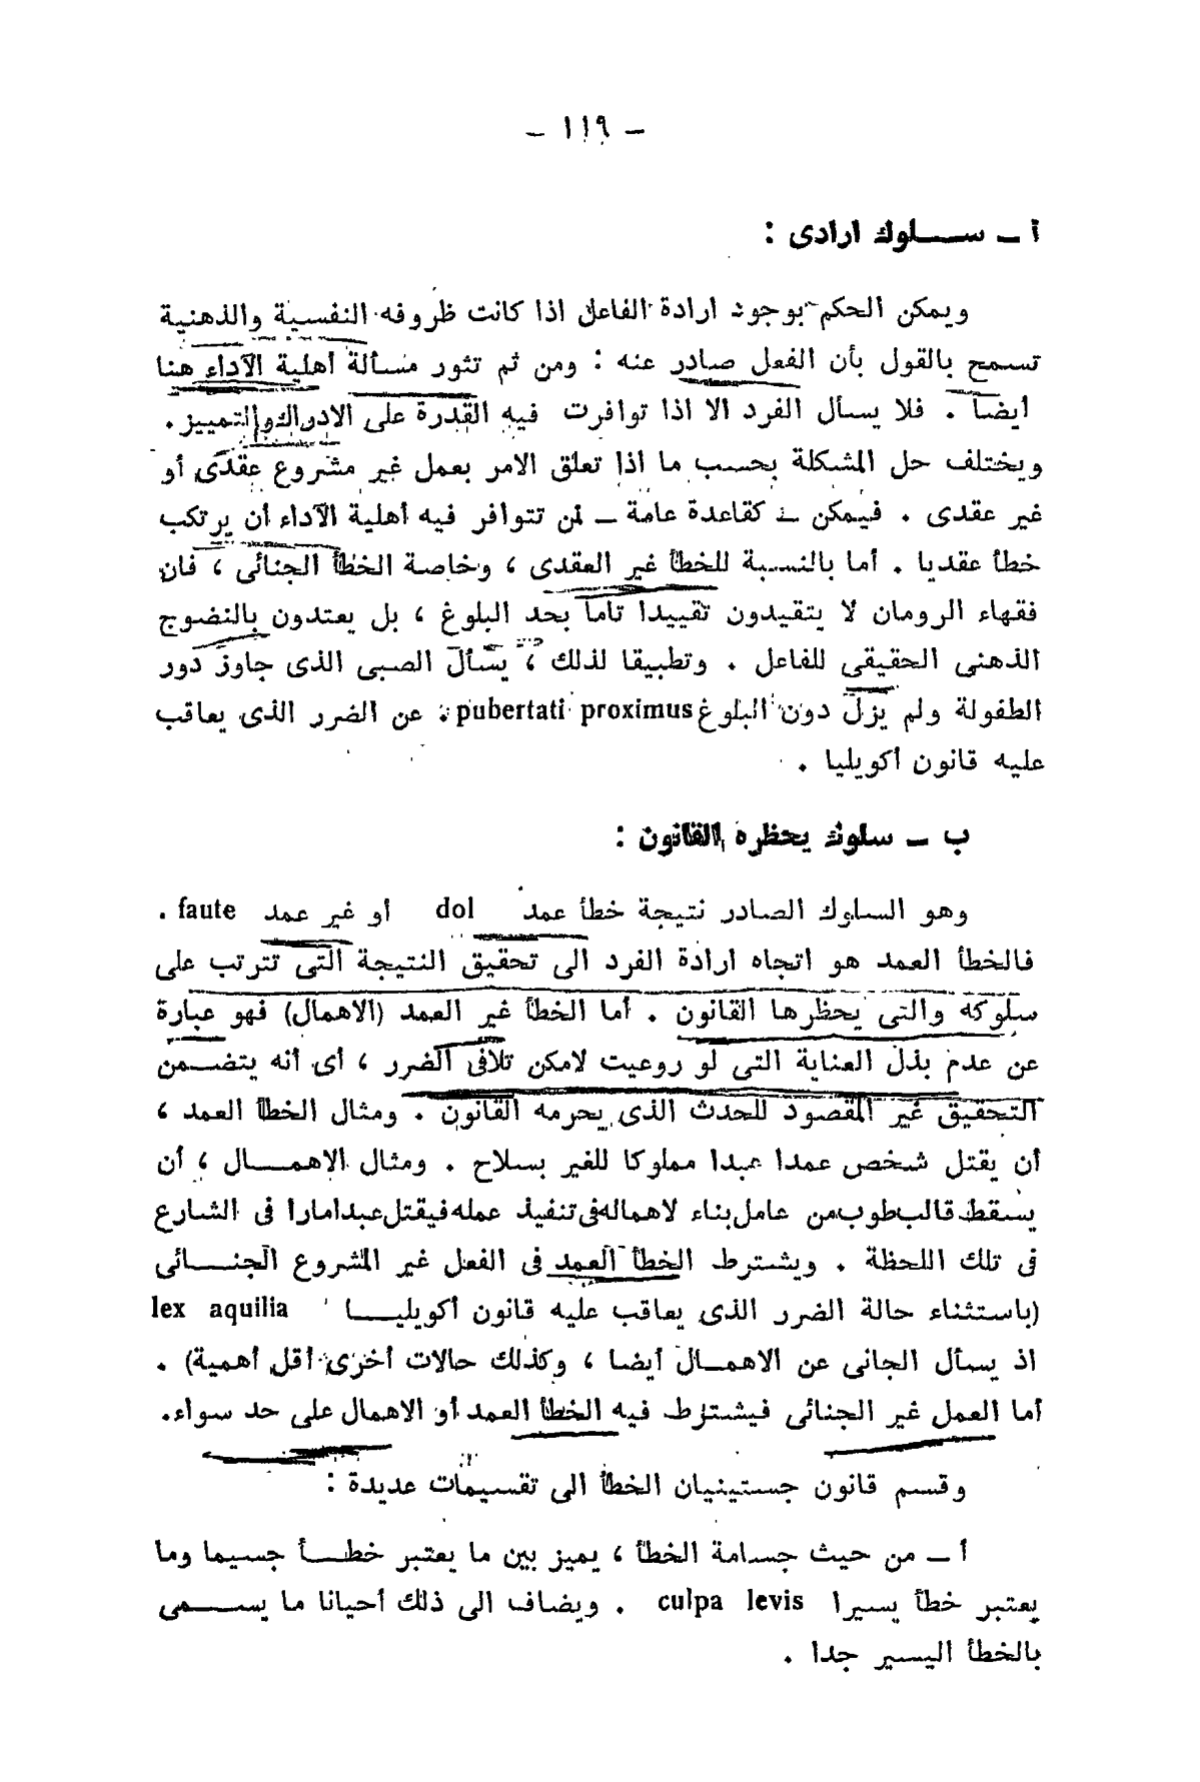 – ١١٩ –
أ – ســـلوك ارادى :
ويمكن الحكم بوجود ارادة الفاعل اذا كانت ظروفه النفسية والذهنية
تسمح بالقول بأن الفعل صادر عنه : ومن ثم تثور مسألة أهلية الآداء هنا
أيضا . فلا يسأل الفرد الا اذا توافرت فيه القدرة على الادراك والتمييز .
ويختلف حل المشكلة بحسب ما اذا تعلق الامر بعمل غير مشروع عقدى أو
غير عقدى . فيمكن – كقاعدة عامة – لمن تتوافر فيه أهلية الآداء أن يرتكب
خطأ عقديا . أما بالنسبة للخطأ غير العقدى ، وخاصة الخطأ الجنائى ، فان
فقهاء الرومان لا يتقيدون تقييدا تاما بحد البلوغ ، بل يعتدون بالنضوج
الذهنى الحقيقى للفاعل . وتطبيقا لذلك ، يسأل الصبى الذى جاوز دور
الطفولة ولم يزل دون البلوغ pubertati proximus . عن الضرر الذى يعاقب
عليه قانون أكويليا .
ب – سلوك يحظره القانون :
وهو السلوك الصادر نتيجة خطأ عمد dol أو غير عمد faute .
فالخطأ العمد هو اتجاه ارادة الفرد الى تحقيق النتيجة التى تترتب على
سلوكه والتى يحظرها القانون . أما الخطأ غير العمد (الاهمال) فهو عبارة
عن عدم بذل العناية التى لو روعيت لامكن تلافى الضرر ، أى أنه يتضـــمن
التحقيق غير المقصود للحدث الذى يحرمه القانون . ومثال الخطأ العمد ،
أن يقتل شخص عمدا عبدا مملوكا للغير بسلاح . ومثال الاهمـــال ، أن
يسقط قالب طوب من عامل بناء لاهماله فى تنفيذ عمله فيقتل عبدا مارا فى الشارع
فى تلك اللحظة . ويشترط الخطأ العمد فى الفعل غير المشروع الجنـــائى
(باستثناء حالة الضرر الذى يعاقب عليه قانون أكويليـــا lex aquilia
اذ يسأل الجانى عن الاهمـــال أيضا ، وكذلك حالات أخرى أقل أهمية) .
أما العمل غير الجنائى فيشترط فيه الخطأ العمد أو الاهمال على حد سواء.
وقسم قانون جستينيان الخطأ الى تقسيمات عديدة :
أ – من حيث جسامة الخطأ ، يميز بين ما يعتبر خطـــأ جسيما وما
يعتبر خطأ يسيرا culpa levis . ويضاف الى ذلك أحيانا ما يســـمى
بالخطأ اليسير جدا .